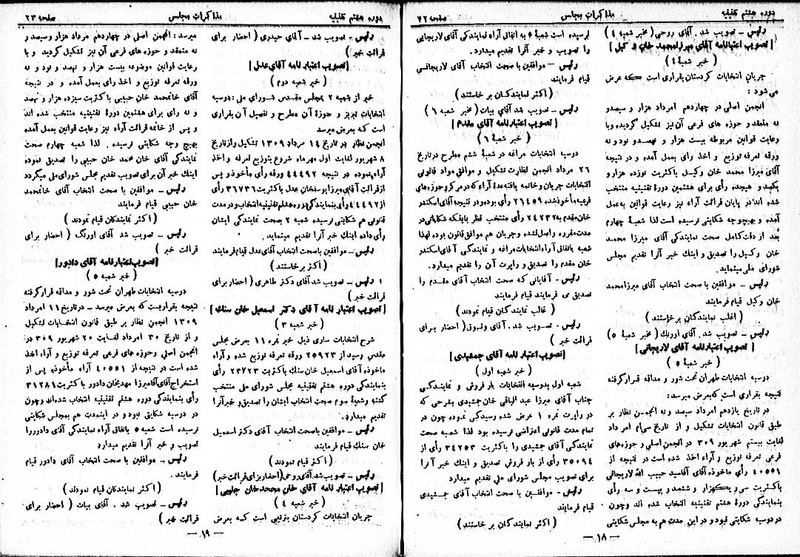 صفحه ۲۲ مذاکرات مجلس دوره هشتم تقنینیه
رئیس - تصویب شد. آقای روحی (مخبر شعبه ۴)
[تصویب اعتبارنامه آقای میرزا محمد خان وکیل]
(خبر شعبه ۴)
جریان انتخابات کردستان بقراری است که عرض
می شود:
انجمن اصلی در چهاردهم امرداد هزار و سیصد و
نه منعقد و حوزه های فرعی آن نیز تشکیل گردیده و با
رعایت قوانین مربوطه بیست هزار و نهصد و نود و نه
ورقه تعرفه توزیع و اخذ رای بعمل آمده و در نتیجه
آقای میرزا محمد خان وکیل باکثریت نوزده هزار و
یکصد و هیجده رأی برای هشتمین دوره تقنینیه منتخب
شده اند در پایان قرائت آراء نیز رعایت قوانین بعمل
آمده و بهیچوجه شکایتی نرسیده است لذا شعبه چهارم
بعد از دقت کامل صحت نمایندگی آقای میرزا محمد
خان وکیل را تصدیق و اینك خبر آنرا تقدیم مجلس
شورای ملی مینماید.
رئیس - موافقین با صحت انتخاب آقای میرزا محمد
خان وکیل قیام فرمایند
(اغلب نمایندگان برخاستند)
رئیس - تصویب شد. آقای اورنك (مخبر شعبه ۵)
[تصویب اعتبارنامه آقای لاریجانی]
(خبر شعبه ۵)
دوسیه انتخابات طهران تحت شور و مداقه قرار گرفته
نتیجه بقراری است که بعرض میرسد:
در تاریخ یازدهم امرداد سیصد و نه انجمن نظار بر
طبق قانون انتخابات تشکیل و از تاریخ سی ام امرداد
لغایت بیستم شهریور ۳۰۹ در انجمن اصلی و حوزه های
فرعی تعرفه توزیع و آراء اخذ شده است در نتیجه از
۴۰۵۵۱ رأی ماخوذه آقای آقاسید حبیب الله لاریجانی
باکثریت سی و یکهزار و ششصد و بیست و سه رأی
بنمایندگی دوره هشتم تقنینیه انتخاب شده اند و چون
در دوسیه شکایتی نبود و در این مدت هم به مجلس شکایتی
نرسیده است شعبه ۵ به اتفاق آراء نمایندگی آقای لاریجانی
را تصویب و خبر آنرا تقدیم میدارد.
رئیس - موافقین با صحت انتخاب آقای لاریجانی
قیام فرمایند
(اکثر نمایندگان برخاستند)
رئیس - تصویب شد آقای بیات (مخبر شعبه ۶)
[تصویب اعتبارنامه آقای مقدم]
(خبر شعبه ۶)
دوسیه انتخابات مراغه در شعبه ششم مطرح در تاریخ
۲۶ مرداد انجمن نظارت تشکیل و موافق مواد قانونی
انتخابات جریان و خاتمه یافته عدۀ آراء که در مرکز و حوزه های
فرعیه مأخوذ شده ۲۶۴۵۹ رأی بوده و در نتیجه آقای اسکندر
خان مقدم به ۲۴۲۳۲ رأی منتخب نظر باینکه شکایاتی در
مدت مقرره واصل نشده و جریان هم موافق قانون بوده لهذا
شعبه باتفاق آراء انتخابات مراغه و نمایندگی آقای اسکندر
خان مقدم را تصدیق و راپرت آن را تقدیم میدارد.
رئیس - آقایانی که صحت انتخاب آقای مقدم را
تصدیق می فرمایند قیام فرمایند
(غالب نمایندگان قیام نمودند)
رئیس - تصویب شد. آقای وثوق (احضار برای
قرائت خبر)
[تصویب اعتبار نامه آقای جمشیدی]
(خبر شعبه اول)
شعبه اول بدوسیه انتخابات بارفروش و نمایندگی
جناب آقای میرزا عبد الباقی خان جمشیدی بشرحی که
در راپرت نمره ۱ عرض شده رسیدگی نموده چون در
مدت قانونی اعتراضی نرسیده بود لذا شعبه صحت
نمایندگی آقای جمشیدی را باکثریت ۳۴۷۵۳ رأی از
۳۵۰۹۴ رأی از بارفروش تصدیق و اینك خبر آنرا
برای تصویب مجلس شورای ملی تقدیم میدارد
رئیس - موافقین با صحت انتخاب آقای جمشیدی
قیام فرمایند
(اکثر نمایندگان برخاستند)
— ۱۸ —
دوره هشتم تقنینیه مذاکرات مجلس صفحه ۲۳
رئیس - تصویب شد - آقای حیدری (احضار برای
قرائت خبر)
[تصویب اعتبارنامه آقای عدل]
(خبر شعبه دوم)
خبر از شعبه ۲ بمجلس مقدس شورای ملی: دوسیه
انتخابات تبریز و حوزۀ آن مطرح و تفصیل آن بقراری
است که بعرض میرسد
انجمن نظار در تاریخ ۱۴ مرداد ۱۳۰۹ تشکیل و از تاریخ
۸ شهریور لغایت اول مهرماه شروع بتوزیع تعرفه و اخذ
آراء نموده در نتیجه ۴۴۴۹۲ ورقه رأی مأخوذ و پس
از قرائت آقای میرزا یوسفخان عدل باکثریت ۳۶۷۳۶ رأی
از ۴۴۴۹۲ رأی بنمایندگی دوره هشتم تقنینیه انتخاب و در مدت
قانونی هم شکایتی نرسیده شعبه ۲ بصحت نمایندگی ایشان
رأی داده اینك خبر آنرا تقدیم مینماید.
رئیس - موافقین با صحت انتخاب آقای عدل قیام فرمایند
(اکثر برخاستند)
رئیس - تصویب شد آقای دکتر طاهری (احضار برای
قرائت خبر)
[تصویب اعتبار نامه آقای دکتر اسمعیل خان سنك]
(خبر شعبه ۳)
شرح انتخابات ساری ذیل خبر نمره ۱۱ بعرض مجلس
مقدس رسید از ۲۵۹۲۳ ورقه تعرفه توزیع شده و آراء
ماخوذه آقای اسمعیل خان سنك باکثریت ۲۳۲۲۳ رأی
بنمایندگی دوره هشتم تقنینیه مجلس شورای ملی منتخب
گشته و شعبه سوم صحت انتخاب ایشان را تصدیق و خبر آنرا
تقدیم میدارد.
رئیس - موافقین با صحت انتخاب آقای دکتر اسمعیل
خان سنك قیام فرمایند
(اکثر قیام نمودند)
رئیس - تصویب شد آقای روحی (احضار برای قرائت خبر)
[تصویب اعتبار نامه آقای خان محمدخان حبیبی]
(خبر شعبه ۴)
جریان انتخابات کردستان بترتیبی است که بعرض
میرسد: انجمن اصلی در چهاردهم امرداد هزار و سیصد و
نه منعقد و حوزه های فرعی آن نیز تشکیل گردید و با
رعایت قوانین موضوعه بیست هزار و نهصد و نود و نه
ورقه تعرفه توزیع و اخذ رای بعمل آمده و در نتیجه
آقای خانمحمد خان حبیبی باکثریت سیزده هزار و نهصد
و نه رای برای هشتمین دورۀ تقنینیه منتخب شده اند
و پس از خاتمه قرائت آراء نیز رعایت قوانین بعمل آمده
بهیچ وجه شکایتی نرسیده. لذا شعبه چهارم صحت
نمایندگی آقای خان محمد خان حبیبی را تصدیق نموده
اینك خبر آن برای تصویب تقدیم مجلس شورای ملی میگردد
رئیس - موافقین با صحت انتخاب آقای خانمحمد
خان حبیبی قیام فرمایند
(اکثر نمایندگان قیام نمودند)
رئیس - تصویب شد آقای اورنگ (احضار برای
قرائت خبر)
[تصویب اعتبارنامه آقای دادور]
(خبر شعبه ۵)
دوسیه انتخابات طهران تحت شور و مداقه قرار گرفته
نتیجه بقراریست که بعرض میرسد - در تاریخ ۱۱ امرداد
۱۳۰۹ انجمن نظار بر طبق قانون انتخابات تشکیل
و از تاریخ ۳۰ امرداد لغایت ۲۰ شهریور ۳۰۹ در
انجمن اصلی و حوزه های فرعی تعرفه توزیع و آراء اخذ
شده است در نتیجه از ۴۰۵۵۱ آراء مأخوذه پس از
استخراج آقای آقامیرزا مهدیخان دادور باکثریت ۳۱۲۸۱
رأی بنمایندگی دوره هشتم تقنینیه انتخاب شده اند و چون
در دوسیه شکایتی نبود و در اینمدت هم بمجلس شکایتی
نرسیده است شعبه ۵ باتفاق آراء نمایندگی آقای دادور را
تصویب و خبر آنرا تقدیم میدارد
رئیس - موافقین با صحت انتخاب آقای دادور قیام
فرمایند.
(اکثر نمایندگان قیام نمودند)
رئیس - تصویب شد. آقای بیات (احضار برای
قرائت خبر)
— ۱۹ —